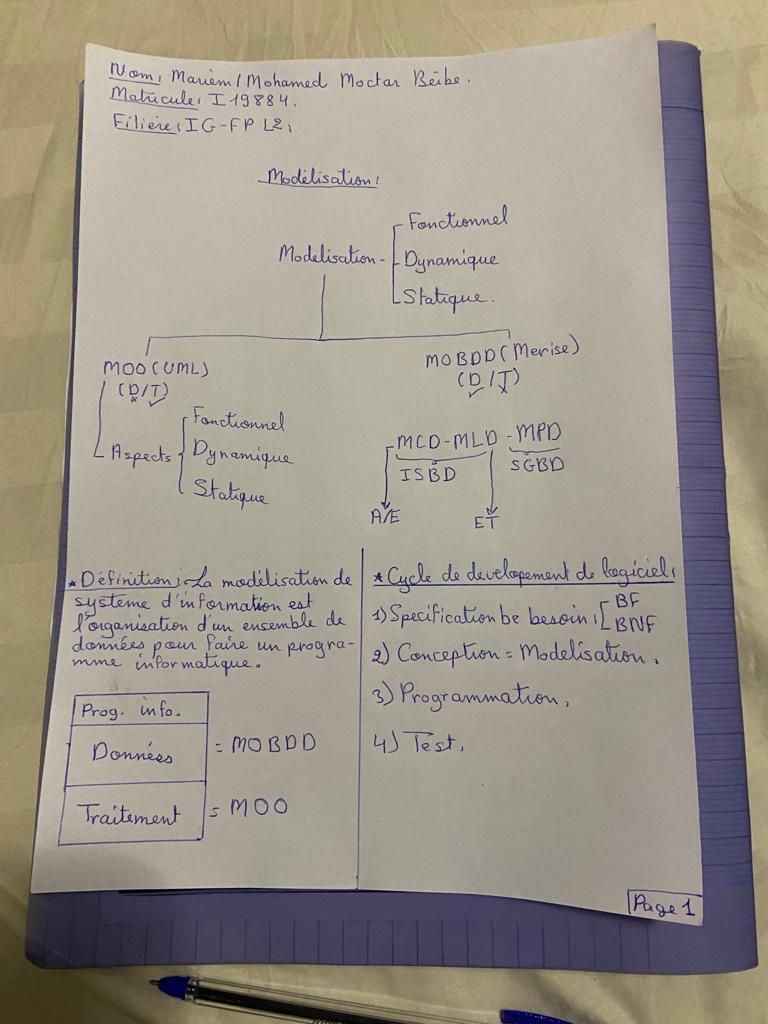 Nom: Mariem/Mohamed Moctar Beibe.
Matricule: I19884.
Filière: IG-FP L2,
Modélisation:
Modelisation -
Fonctionnel
Dynamique
Statique.
MOO (UML)
(D/T)
Aspects
Fonctionnel
Dynamique
Statique
MOBDD (Merise)
(D/T)
MCD-MLD-MPD
ISBD
SGBD
A/E
ET
* Définition: La modélisation de
système d'information est
l'organisation d'un ensemble de
données pour faire un progra-
mme informatique.
Prog. info.
Données = MOBDD
Traitement = MOO
* Cycle de developement de logiciel:
1) Specification be besoin: BF
BNF
2) Conception = Modelisation.
3) Programmation,
4) Test,
Page 1